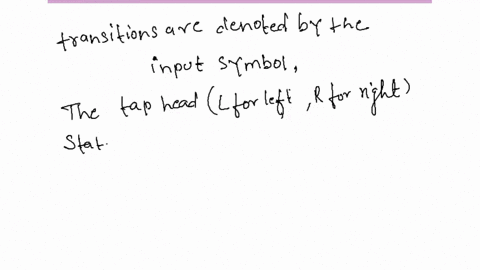 transitions are denoted by the
input symbol,
The tap head (L for left, R for right)
Stat